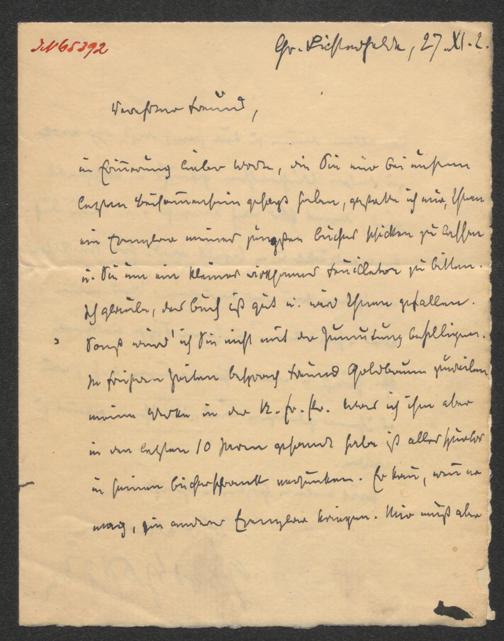 IN 65392
Gr. Lichterfelde, 27. XI. 2.
Verehrter Freund,
in Erinnerung lieber Worte, die Sie mir bei unserm
letzten Beisammensein gesagt haben, gestatte ich mir, Ihnen
ein Exemplar meines jüngsten Buches schicken zu lassen
u. Sie um ein kleines wirksames Feuilleton zu bitten.
Ich glaube, das Buch ist gut u. wird Ihnen gefallen.
Sonst würd' ich Sie nicht mit der Zumutung behelligen.
In frühern Zeiten besprach Freund Goldbaum zuweilen
meine Werke in der N. fr. Pr. Was ich ihm aber
in den letzten 10 Jahren gesandt habe ist alles spurlos
in seinem Bücherschrank versunken. Er kann, wenn er
mag, ein anderes Exemplar kriegen. Mir muß aber